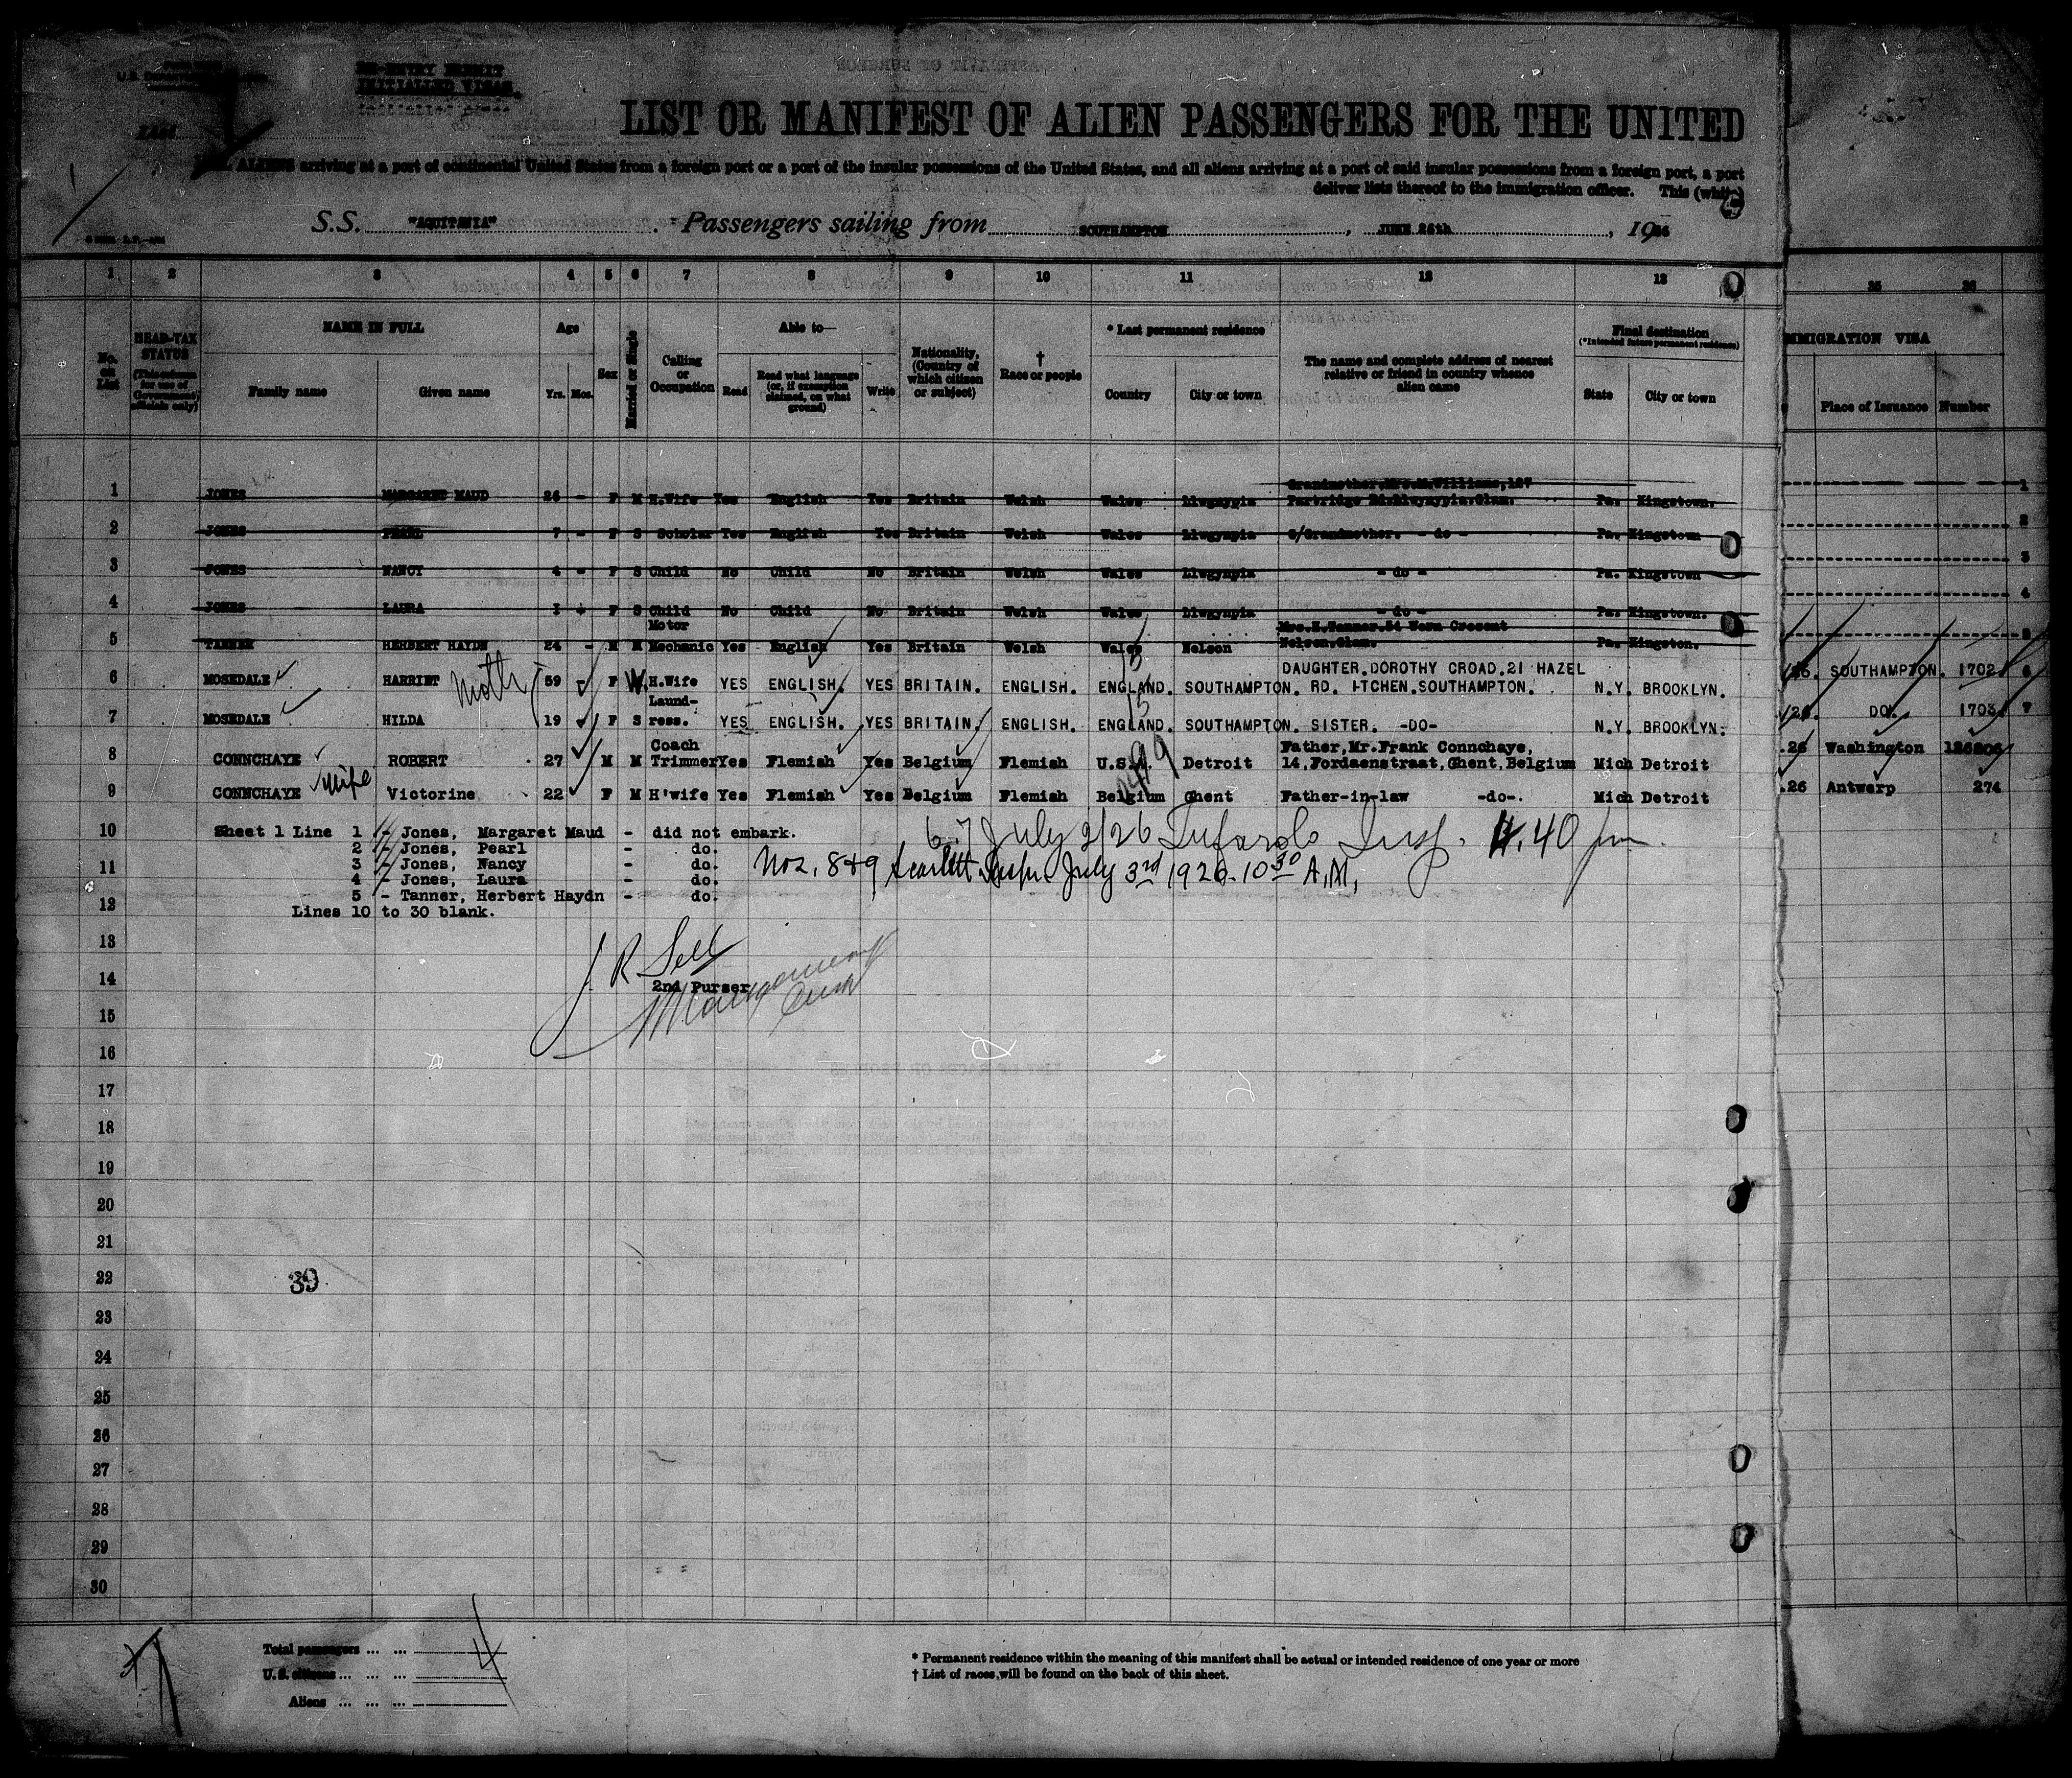 RE-ENTRY PERMIT
INITIALLED VISAS.
List
LIST OR MANIFEST OF ALIEN PASSENGERS FOR THE UNITED
ALL ALIENS arriving at a port of continental United States from a foreign port or a port of the insular possessions of the United States, and all aliens arriving at a port of said insular possessions from a foreign port, a port
deliver lists thereof to the immigration officer. This (white)
S.S. "AQUITANIA" Passengers sailing from SOUTHAMPTON, JUNE 26th, 1926
1 2 3 4 5 6 7 8 9 10 11 12 13 25 26
No. on List
HEAD-TAX STATUS (This column for use of Government officials only)
NAME IN FULL
Family name
Given name
Age
Yrs. Mos.
Sex
Married or Single
Calling or Occupation
Able to—
Read
Read what language (or, if exemption claimed, on what ground)
Write
Nationality, (Country of which citizen or subject)
† Race or people
* Last permanent residence
Country
City or town
The name and complete address of nearest relative or friend in country whence alien came
Final destination
(*Intended future permanent residence)
State
City or town
IMMIGRATION VISA
Place of Issuance
Number
Grandmother, Mrs. M. Williams, 127
1 JONES MARGARET MAUD 26 - F M H.Wife Yes English Yes Britain Welsh Wales Llwgnypia Partridge Rd. Llwynypia. Glam. Pa. Kingstown. 1
2 JONES PEARL 7 - F S Scholar Yes English Yes Britain Welsh Wales Llwgynpia G/Grandmother. - do - Pa. Kingstown 2
3 JONES NANCY 4 - F S Child No Child No Britain Welsh Wales Llwgynpia - do - Pa. Kingstown 3
4 JONES LAURA F S Child No Child No Britain Welsh Wales Llwgynpia - do - Pa. Kingstown. 4
Motor Mrs. H. Tanner. 54 Wern Cresent
5 TANNER HERBERT HAYDN 24 - M M Mechanic Yes English Yes Britain Welsh Wales Nelson Nelson, Glam. Pa. Kingston. 5
DAUGHTER. DOROTHY CROAD. 21 HAZEL
6 MOSEDALE HARRIET Moth 59 F W H.Wife YES ENGLISH. YES BRITAIN. ENGLISH. ENGLAND. SOUTHAMPTON. RD. ITCHEN. SOUTHAMPTON. N.Y. BROOKLYN. 26. SOUTHAMPTON. 1702 6
Laund-
7 MOSEDALE HILDA 19 F S ress. YES ENGLISH. YES BRITAIN. ENGLISH. ENGLAND. SOUTHAMPTON. SISTER. -DO- N.Y. BROOKLYN. 26. DO. 1703 7
Coach Father, Mr. Frank Connchaye,
8 CONNCHAYE ROBERT 27 M M Trimmer Yes Flemish Yes Belgium Flemish U.S.A. Detroit 14, Fordaenstraat, Ghent, Belgium Mich Detroit .26 Washington 126206
9 CONNCHAYE wife Victorine 22 F M H'wife Yes Flemish Yes Belgium Flemish Belgium Ghent Father-in-law -do-. Mich Detroit .26 Antwerp 274
10 Sheet 1 Line 1 - Jones, Margaret Maud - did not embark.
6-7 July 2/26 Insp. 4.40 pm.
2 - Jones, Pearl - do.
11 3 - Jones, Nancy - do.
Nos. 8 & 9 Scarlett Inspr. July 3rd 1926 - 10 30 A.M.
4 - Jones, Laura - do.
12 5 - Tanner, Herbert Haydn - do.
Lines 10 to 30 blank.
13
J. R. Sell
14 2nd Purser
15
16
17
18
19
20
21
22 39
23
24
25
26
27
28
29
30
Total passengers ... ... 4
U.S. citizens ... ... ...
Aliens ... ... ...
* Permanent residence within the meaning of this manifest shall be actual or intended residence of one year or more
† List of races, will be found on the back of this sheet.